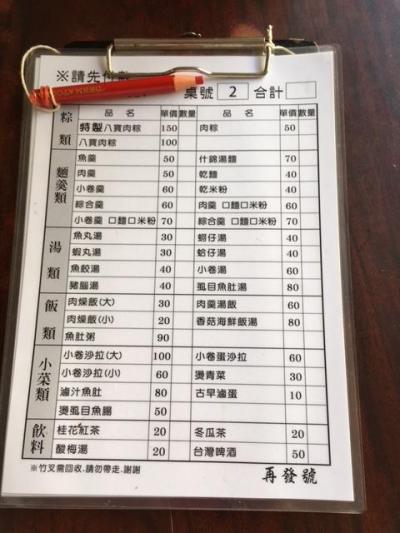 ※請先付款
桌號 2 合計
品名 單價 數量 品名 單價 數量
粽類 特製八寶肉粽 150 肉粽 50
八寶肉粽 100
麵羹類 魚羹 50 什錦湯麵 70
肉羹 50 乾麵 40
小卷羹 60 乾米粉 40
綜合羹 60 肉羹 口麵口米粉 60
小卷羹 口麵口米粉 70 綜合羹 口麵口米粉 70
湯類 魚丸湯 30 蚵仔湯 40
蝦丸湯 30 蛤仔湯 40
魚餃湯 40 小卷湯 60
豬腦湯 40 虱目魚肚湯 80
飯類 肉燥飯(大) 30 肉羹湯飯 60
肉燥飯(小) 20 香菇海鮮飯湯 80
魚肚粥 90
小菜類 小卷沙拉(大) 100 小卷蛋沙拉 60
小卷沙拉(小) 60 燙青菜 30
滷汁魚肚 80 古早滷蛋 10
燙虱目魚腸 50
飲料 桂花紅茶 20 冬瓜茶 20
酸梅湯 20 台灣啤酒 50
※竹叉需回收,請勿帶走,謝謝 再發號